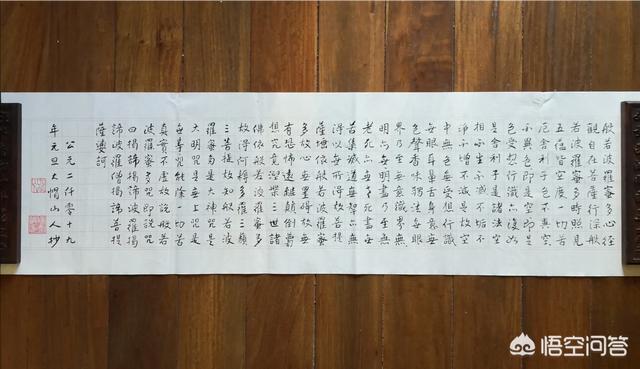 般若波羅蜜多心经
觀自在菩薩行深般
若波羅蜜多時照見
五蘊皆空度一切苦
厄舍利子色不異空
不異色空即是
色受想行識亦復如
是舍利子是諸法空
相不生不滅不垢不
淨不增不減是故空
中無色無受想行識
無眼耳鼻舌身意無
色聲香味觸法無眼
界乃至無意識界無
明亦無明盡乃至無
老死亦無老死盡無
苦集滅道無智亦無
得以無所得故菩提
薩埵依般若波羅蜜
多故心無罣礙故無
有恐怖遠離顛倒夢
想究竟涅槃三世諸
佛依般若波羅蜜多
故得阿耨多羅三藐
三菩提故知般若波
羅蜜多是大神咒是
大明咒是無上咒是
無等咒能除一切苦
真實不虛故說般若
波羅蜜多咒即說咒
曰揭諦揭諦波羅揭
諦波羅僧揭諦菩提
薩婆訶
公元二仟零十九
年元旦大帽山人抄
悟空问答